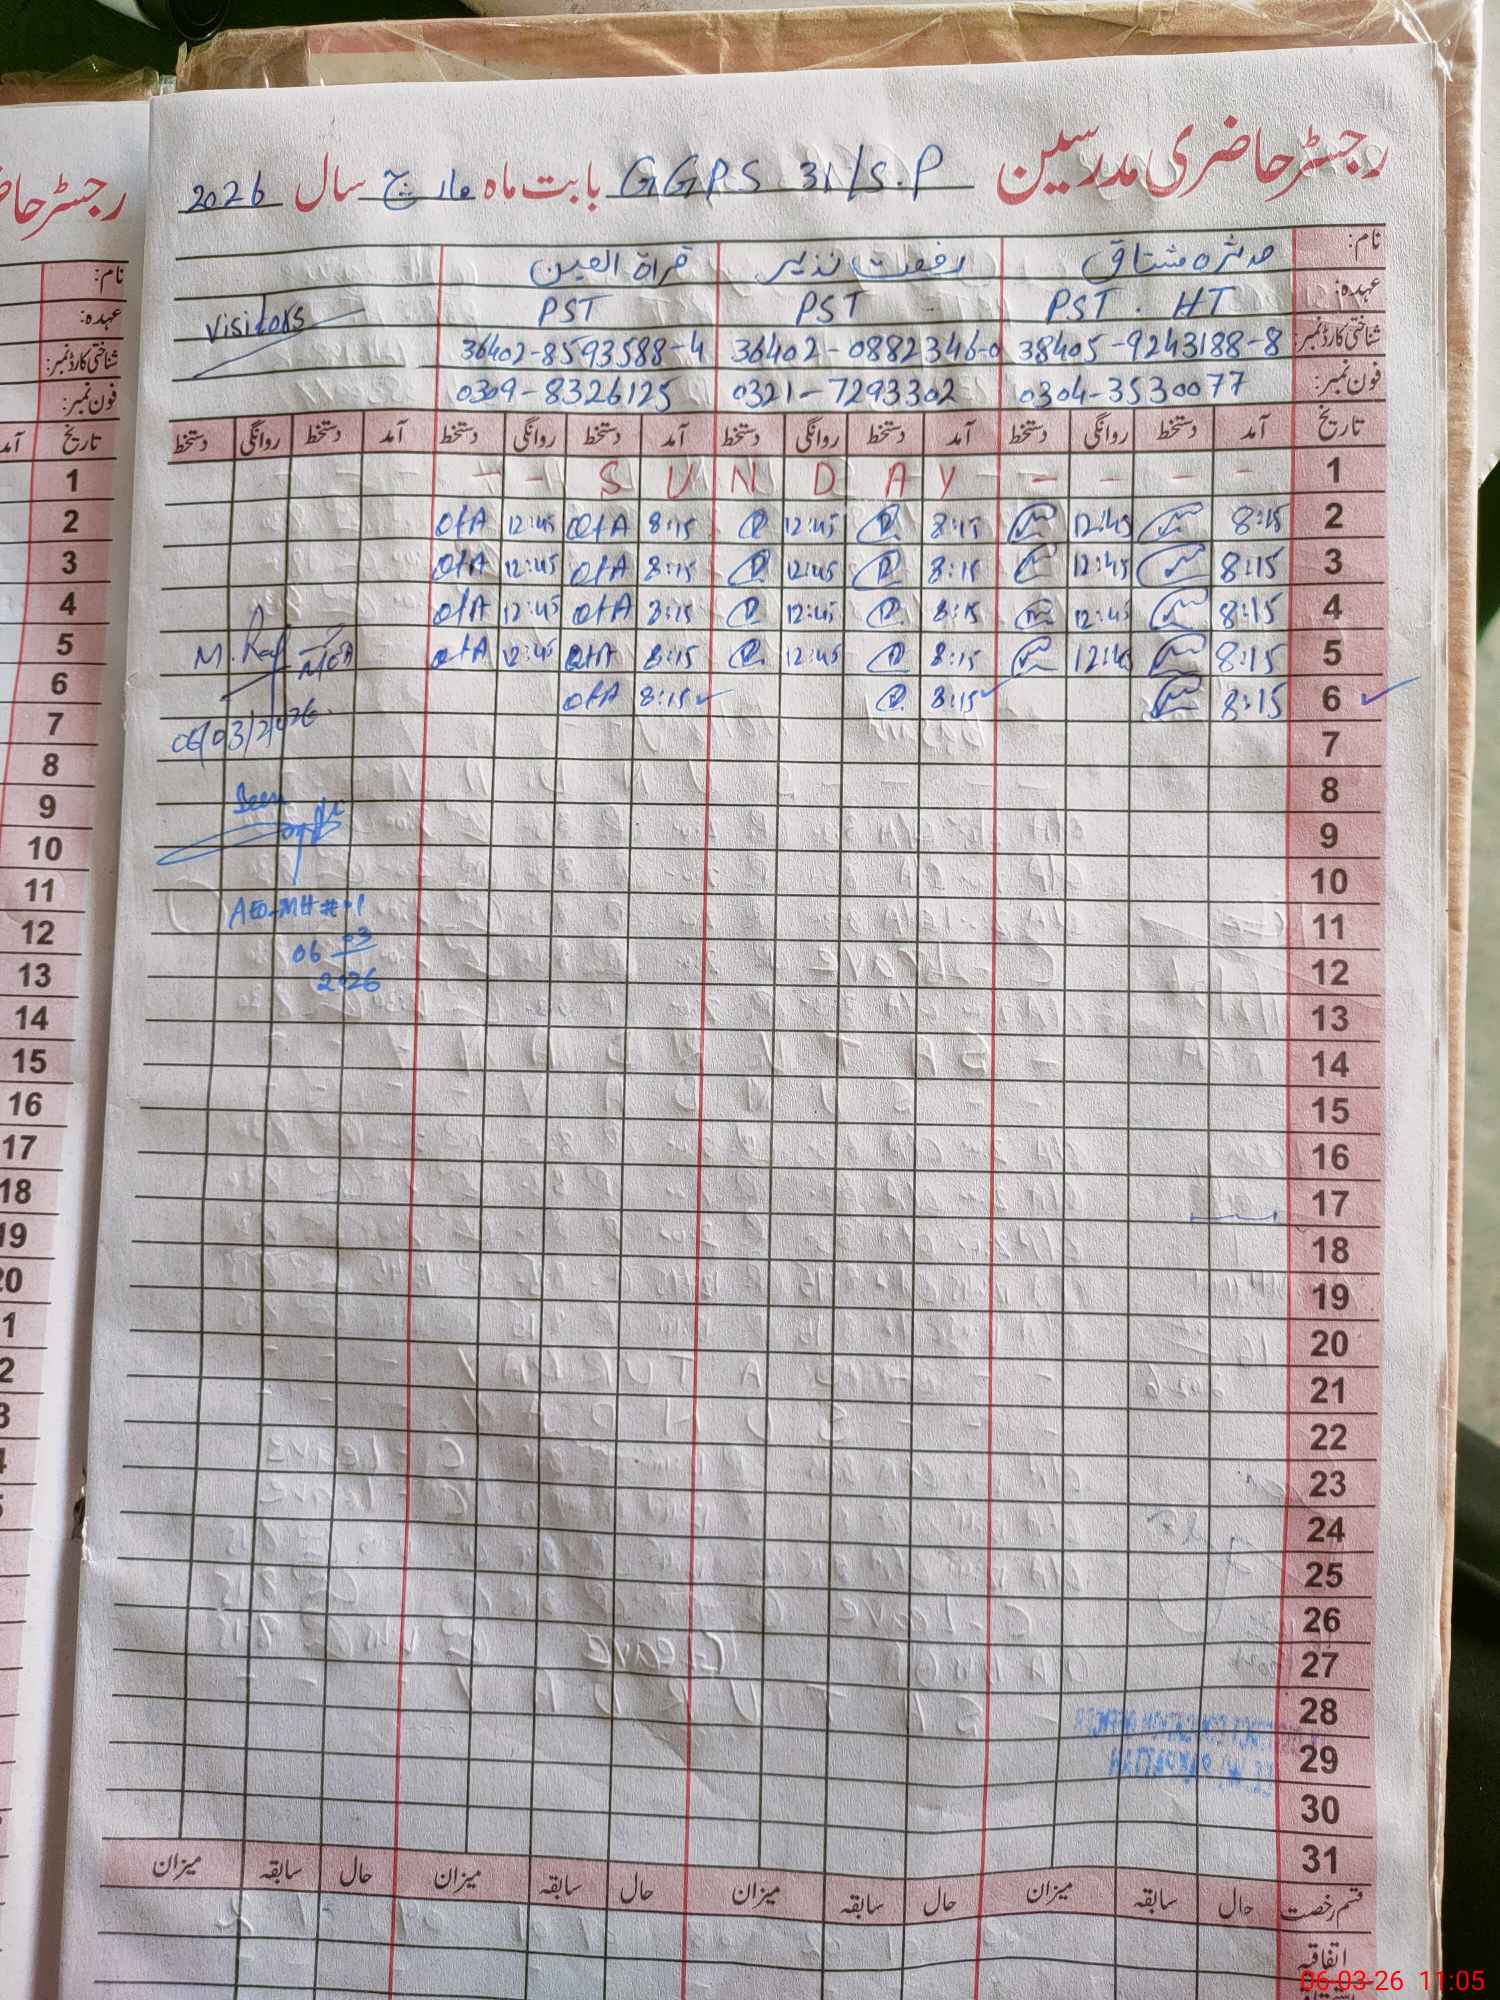 رجسٹر حاضری مدرسین GGPS 31/S.P بابت ماہ مارچ سال 2026
نام: مدثرہ مشتاق رفعت نذیر قراۃ العین
عہدہ: PST . HT PST PST Visitors
شناختی کارڈ نمبر: 38405-9243188-8 36402-0882346-0 36402-8593588-4
فون نمبر: 0304-3530077 0321-7293302 0309-8326125
تاریخ آمد دستخط روانگی دستخط آمد دستخط روانگی دستخط آمد دستخط روانگی دستخط آمد دستخط روانگی دستخط
1 - - - - S U N D A Y - -
2 8:15 12:45 8:15 12:45 8:15 12:45
3 8:15 12:45 8:15 12:45 8:15 12:45
4 8:15 12:45 8:15 12:45 8:15 12:45
5 8:15 12:45 8:15 12:45 8:15 12:45
6 8:15 8:15 8:15
06/03/2026
7
8
Seen
9
10
11
AEO-MH#01
12
06 03
2026
13
14
15
16
17
18
19
20
21
22
23
24
25
26
27
28
29
30
31
قسم رخصت حال سابقہ میزان حال سابقہ میزان حال سابقہ میزان حال سابقہ میزان
اتفاقیہ
رجسٹر حا
نام:
عہدہ:
شناختی کارڈ نمبر:
فون نمبر:
تاریخ آمد
1
2
3
4
5
6
7
8
9
10
11
12
13
14
15
16
17
18
19
20
06-03-26 11:05